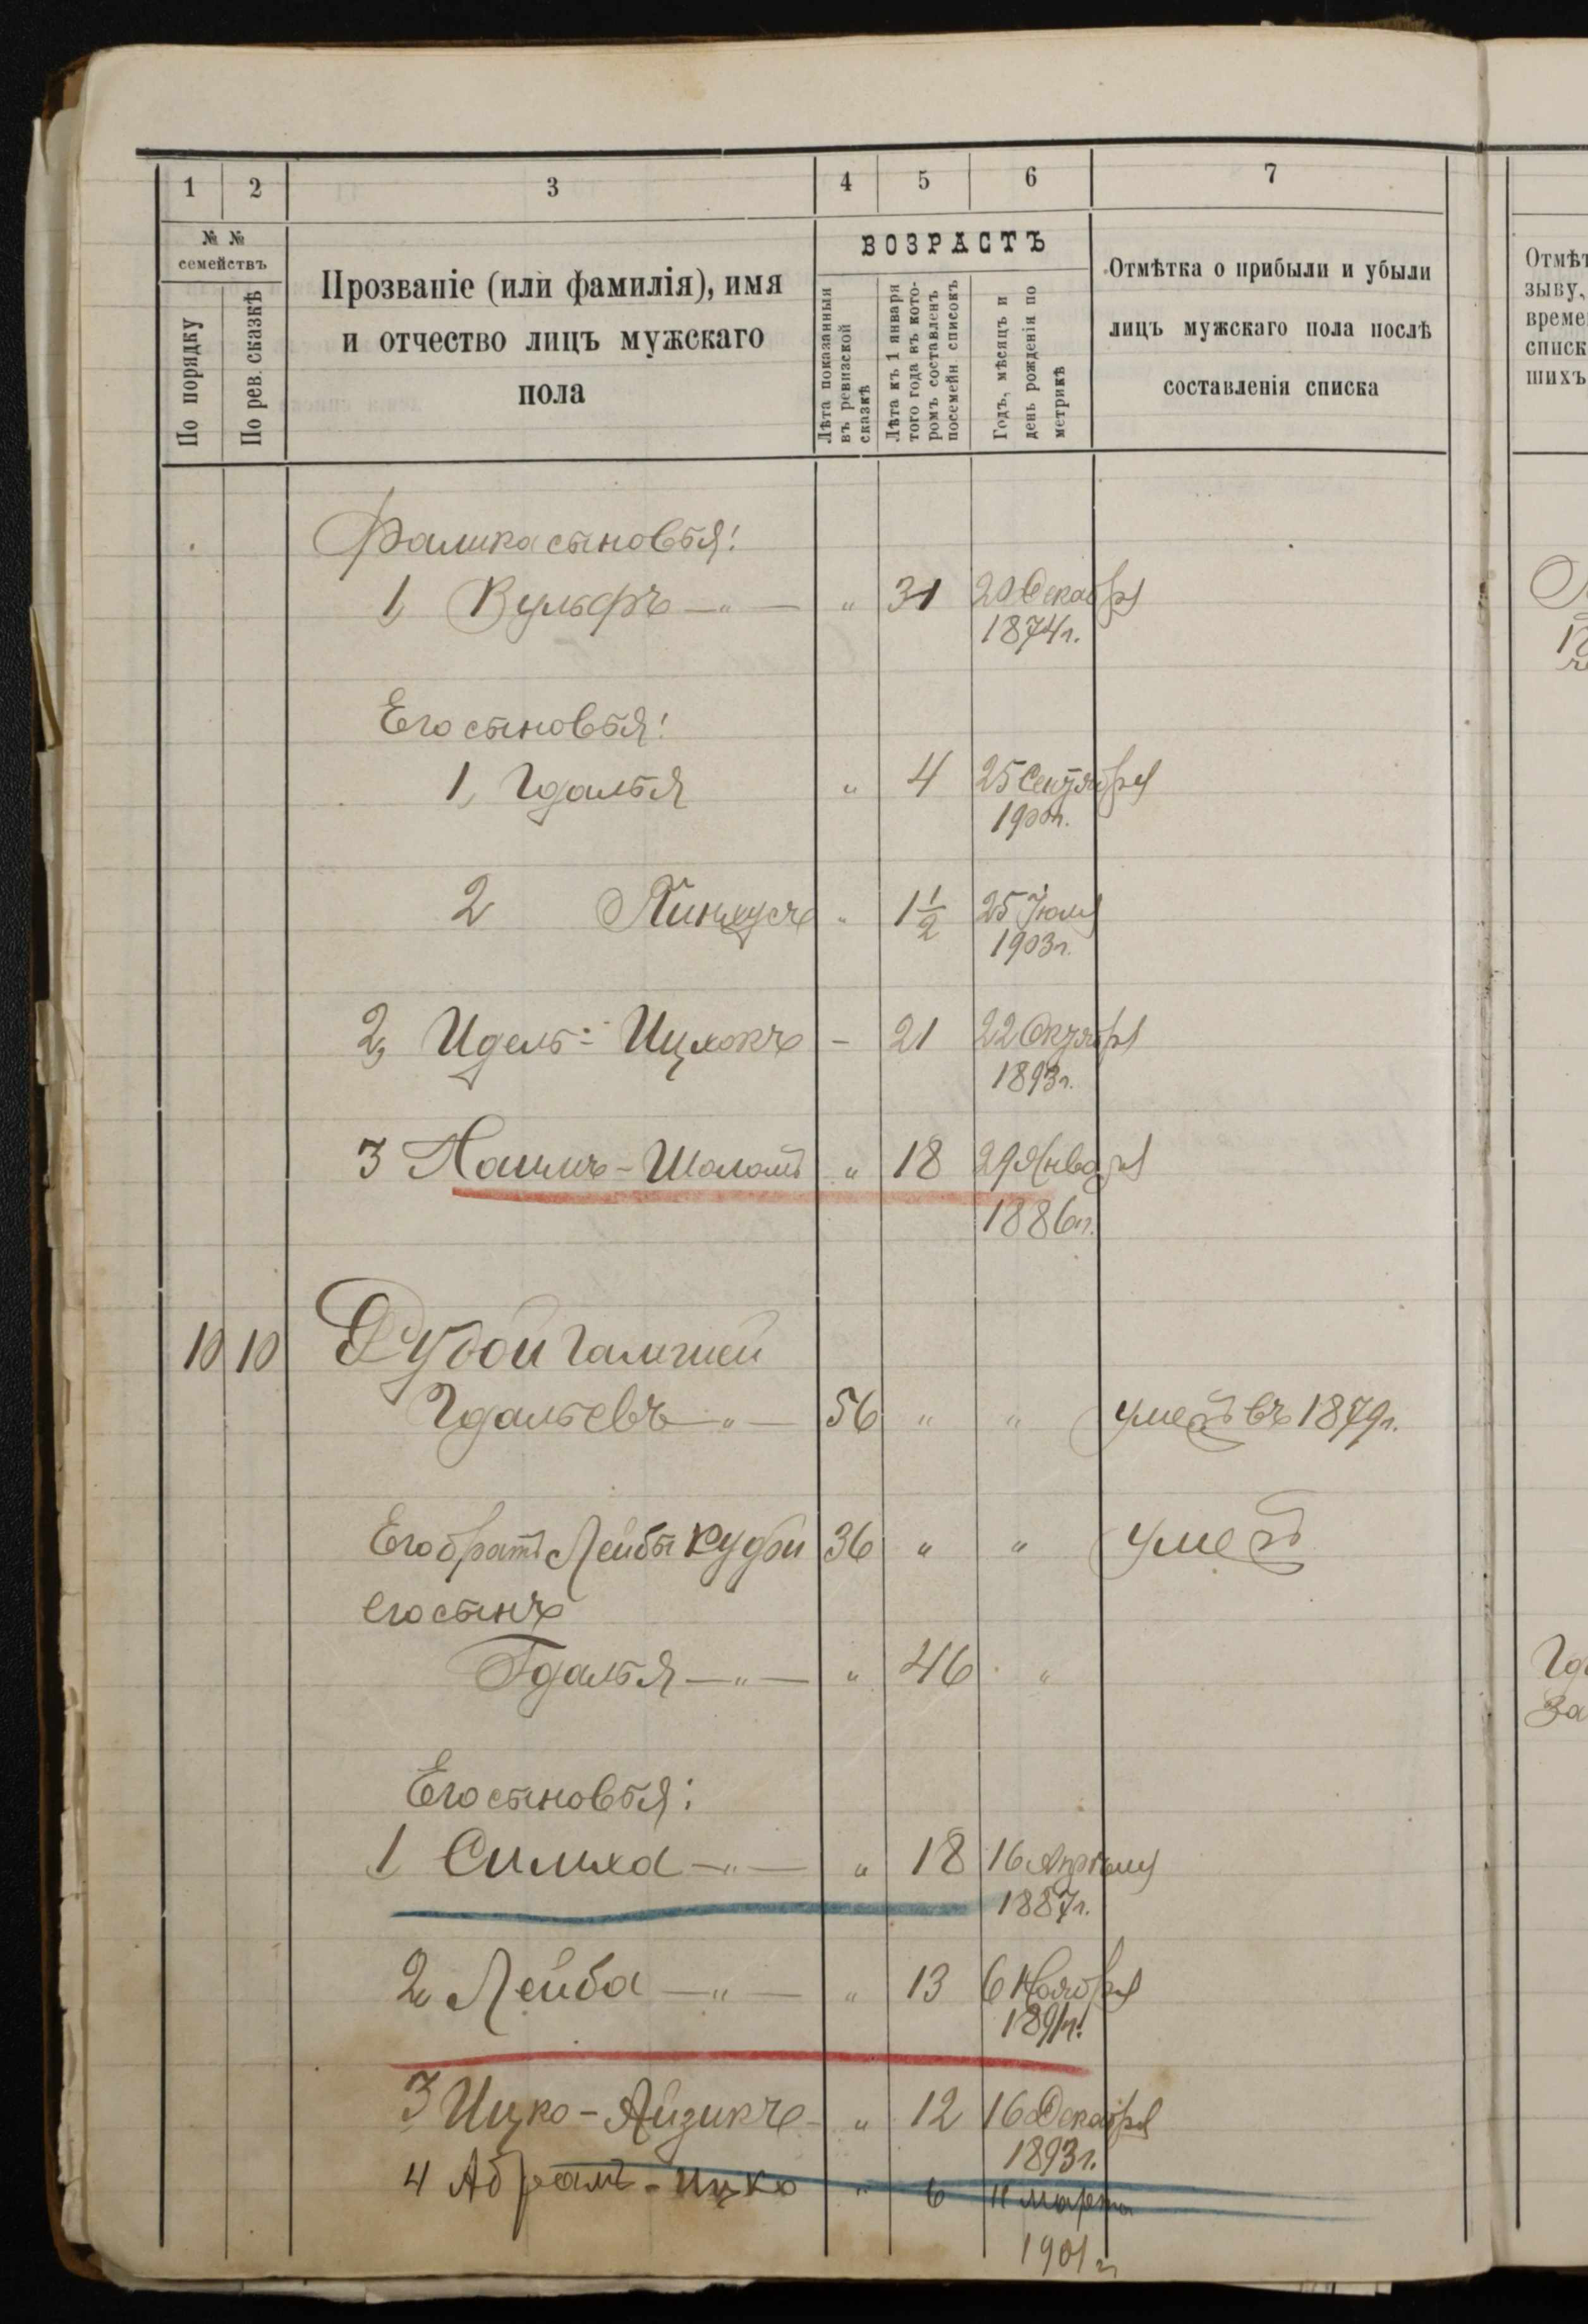 1 2 3 4 5 6 7
№ №
семействъ
По порядку
По рев. сказкѣ
Прозваніе (или фамилія), имя
и отчество лицъ мужскаго
пола
ВОЗРАСТЪ
Лѣта показанныя
въ ревизской
сказкѣ
Лѣта къ 1 января
того года въ кото-
ромъ составленъ
посемейн списокъ
Годъ, мѣсяцъ и
день рожденія по
метрикѣ
Отмѣтка о прибыли и убыли
лицъ мужскаго пола послѣ
составленія списка
сыновья:
1, Вульфъ —"— " 31 20 Декабря
1874 г.
Его сыновья:
1, Гдалья " 4 25 Сентября
1900 г.
2 Пинхусъ " 1½ 25 Іюля
1903 г.
2, Идель-Ицхокъ — 21 22 Октября
1893 г.
3 -Шоломъ " 18 29 Января
1886 г.
10 10
Гдальевъ —"— 56 " " умеръ въ 1879 г.
Его братъ Лейба 36 " " умеръ
его сынъ
Гдалья —"— " 46 "
Его сыновья:
1, Симха —"— " 18 16 Апрѣля
1887 г.
2, Лейба —"— " 13 6 Ноября
1891 г.
3 Ицко-Айзикъ — " 12 16 Декабря
1893 г.
4 Абрамъ-Ицко " 6 марта
1901 г
Отмѣт
зыву,
време
списк
шихъ
Гд
За